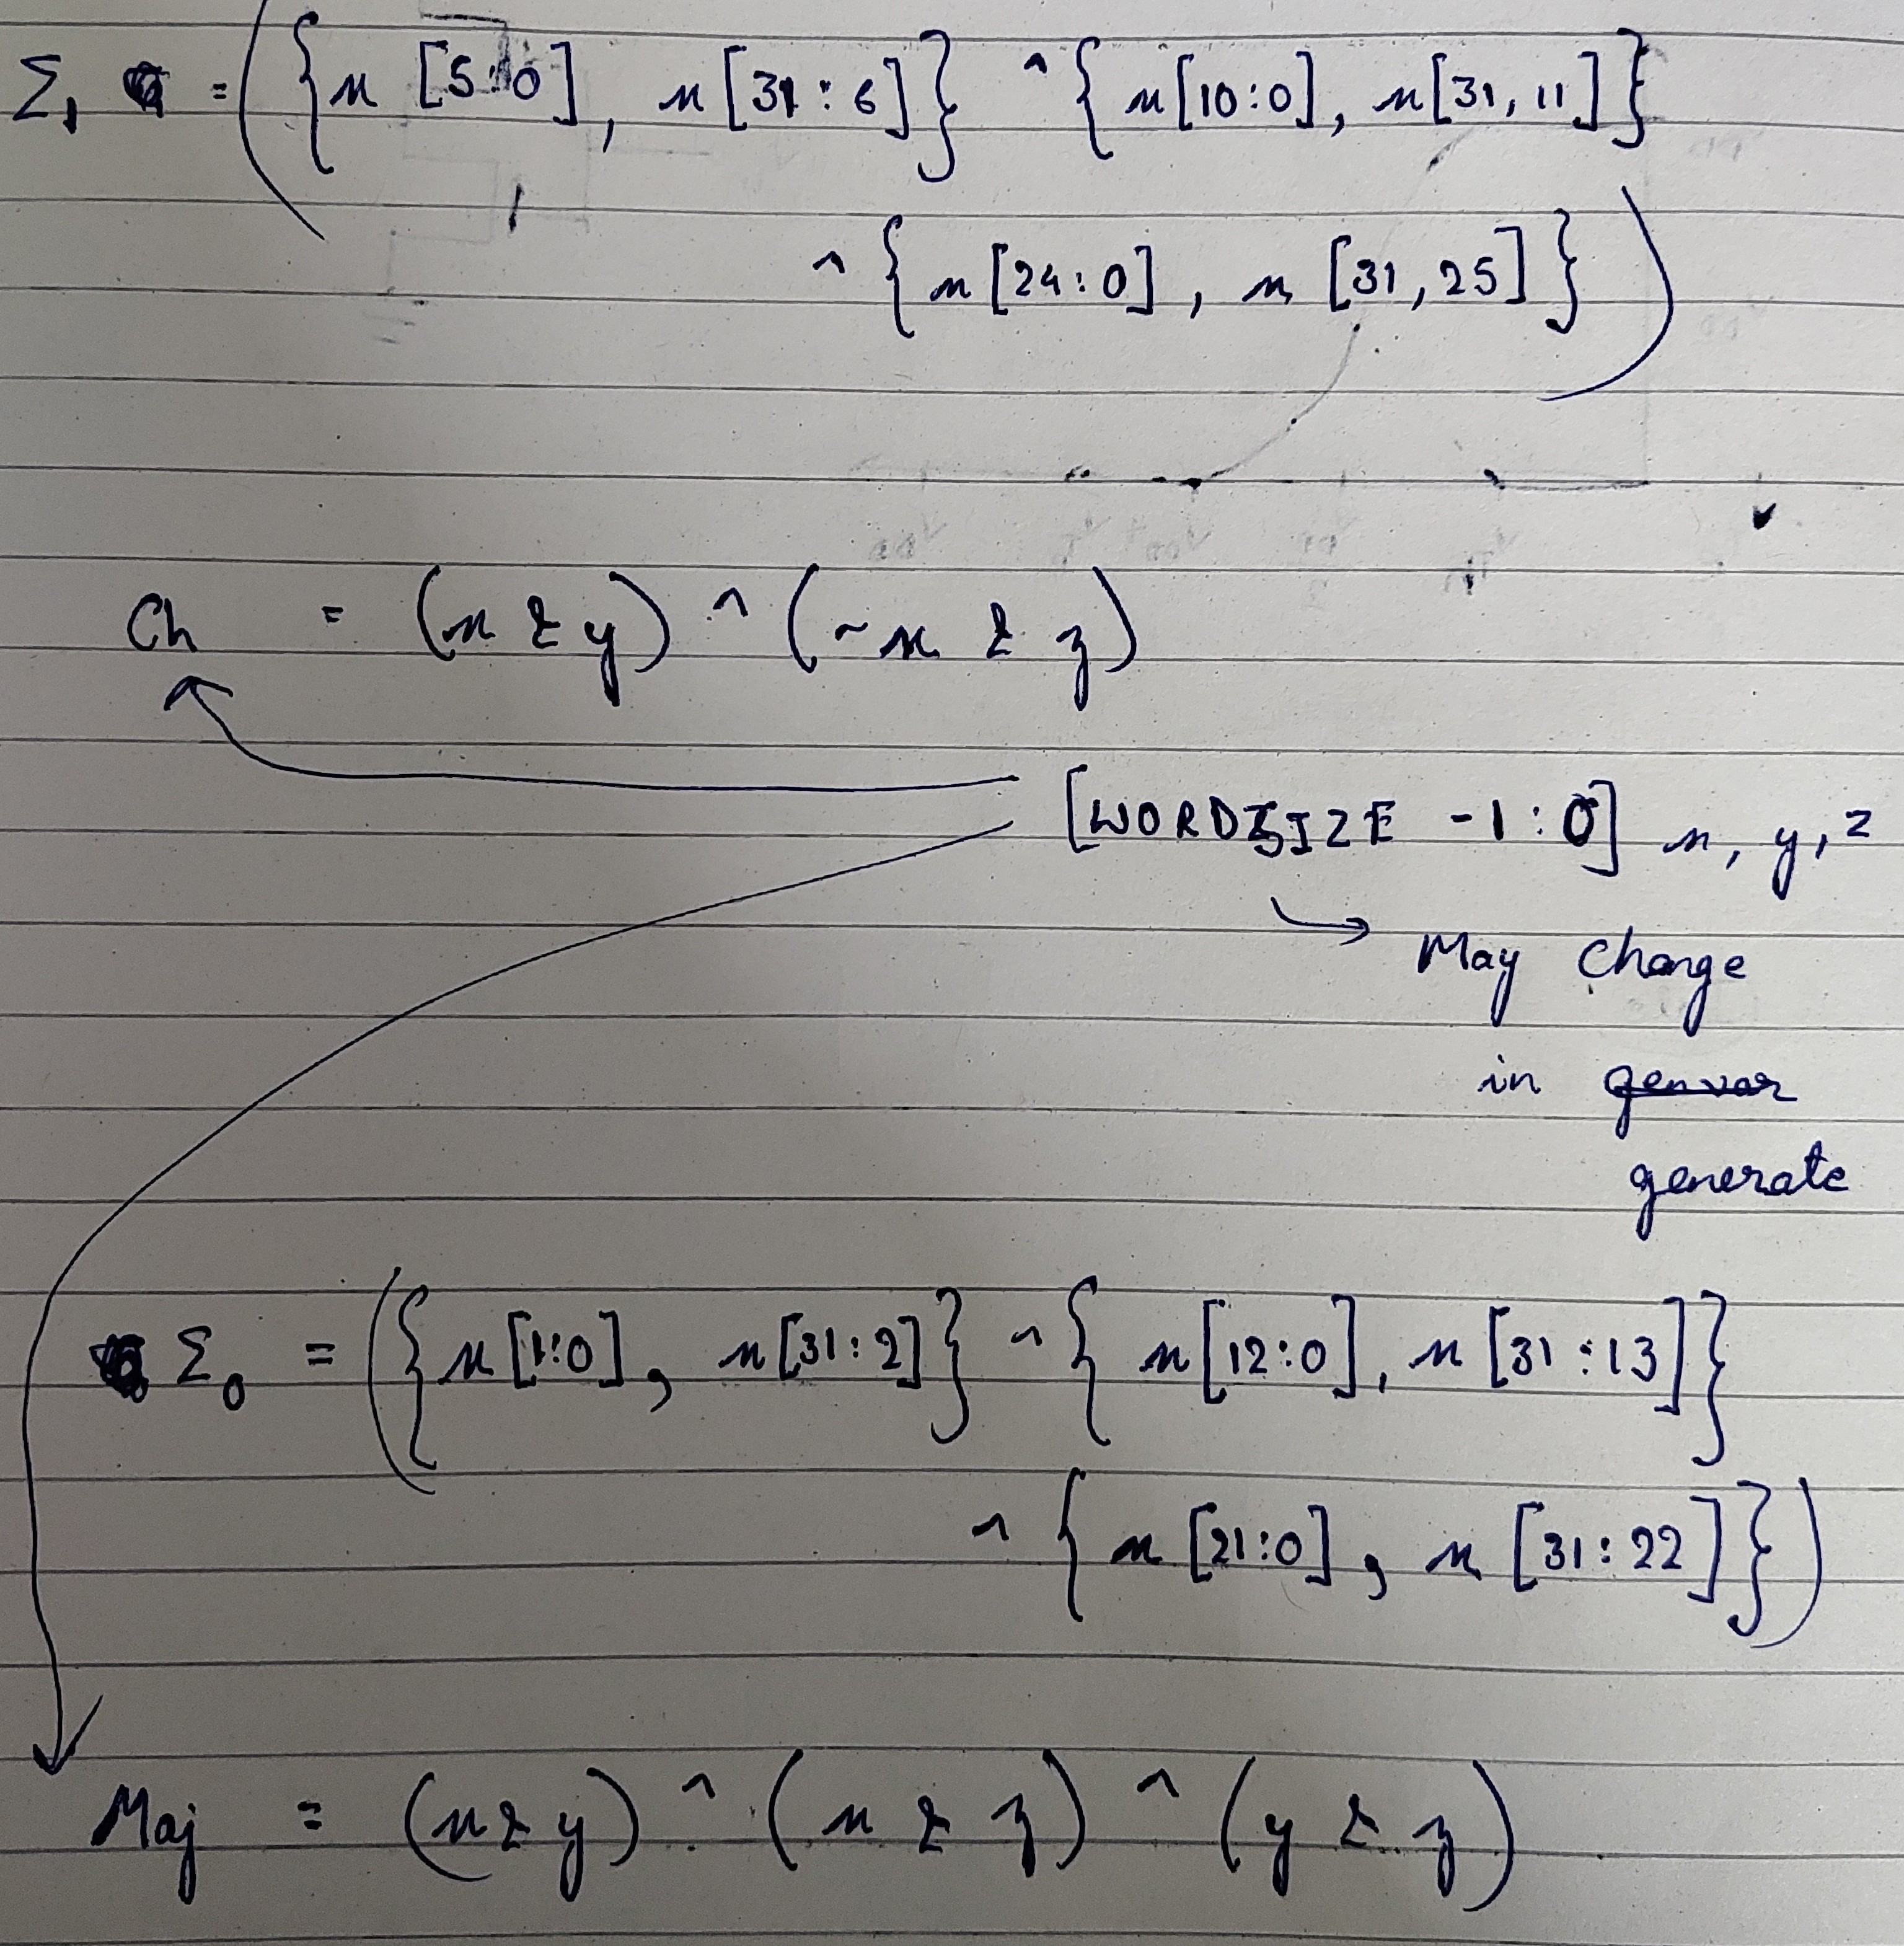 Σ₁ = ({x [5:0], x[31:6]} ^ {x[10:0], x[31,11]}
^ {x[24:0], x [31,25]})
Ch = (x & y) ^ (~x & z)
[WORDSIZE -1:0] x, y, z
May Change
in genvar
generate
Σ₀ = ({x[1:0], x[31:2]} ^ {x[12:0], x[31:13]}
^ {x [21:0], x [31:22]})
Maj = (x & y) ^ (x & z) ^ (y & z)